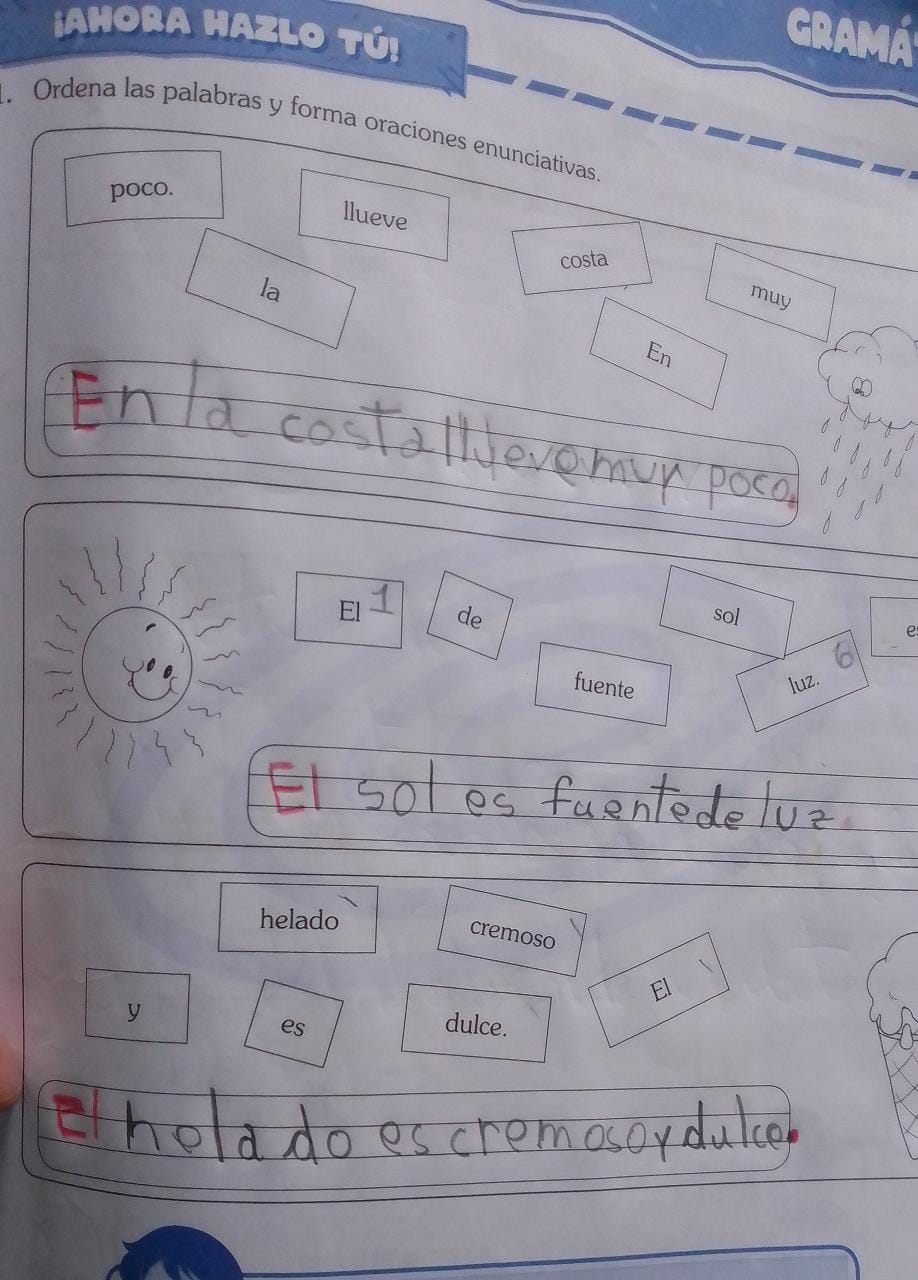 ¡AHORA HAZLO TÚ!
GRAMÁ
1. Ordena las palabras y forma oraciones enunciativas.
poco.
llueve
costa
muy
la
En
En la costa llueve muy poco.
El 1
de
sol
fuente
luz. 6
El sol es fuente de luz.
helado
cremoso
El
y
es
dulce.
El helado es cremoso y dulce.